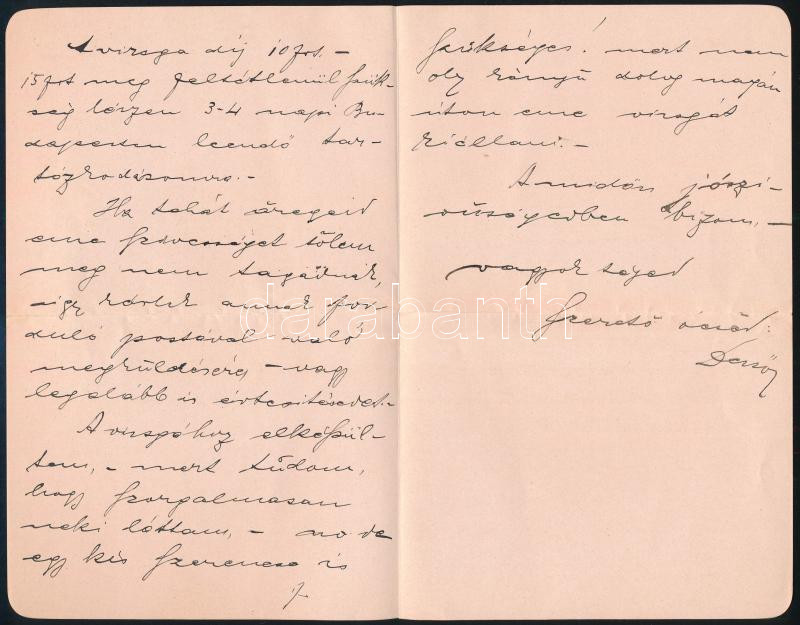 A virsga díj 10 frt. –
15 frt meg feltétlenül szük-
ség lészen 3-4 napi Bu-
dapesten leendő tar-
tózkodásomra. –
Ha tehát öregeid
eme szívességet tőlem
meg nem tagadnák,
úgy kérlek annak for-
duló postával való
megküldésére, – vagy
legalább is értesítésedet. –
A virsgához elkészül-
tem, – mert tudom,
hogy szorgalmasan
neki láttam, – no de
egy kis szerencse is
./.
szükséges! mert nem
oly könnyű dolog magán
úton eme virsgát
kiállani. –
Amidőn jószí-
vűségedben bízom, –
vagyok téged
szerető öcséd:
Dezső
darabanth